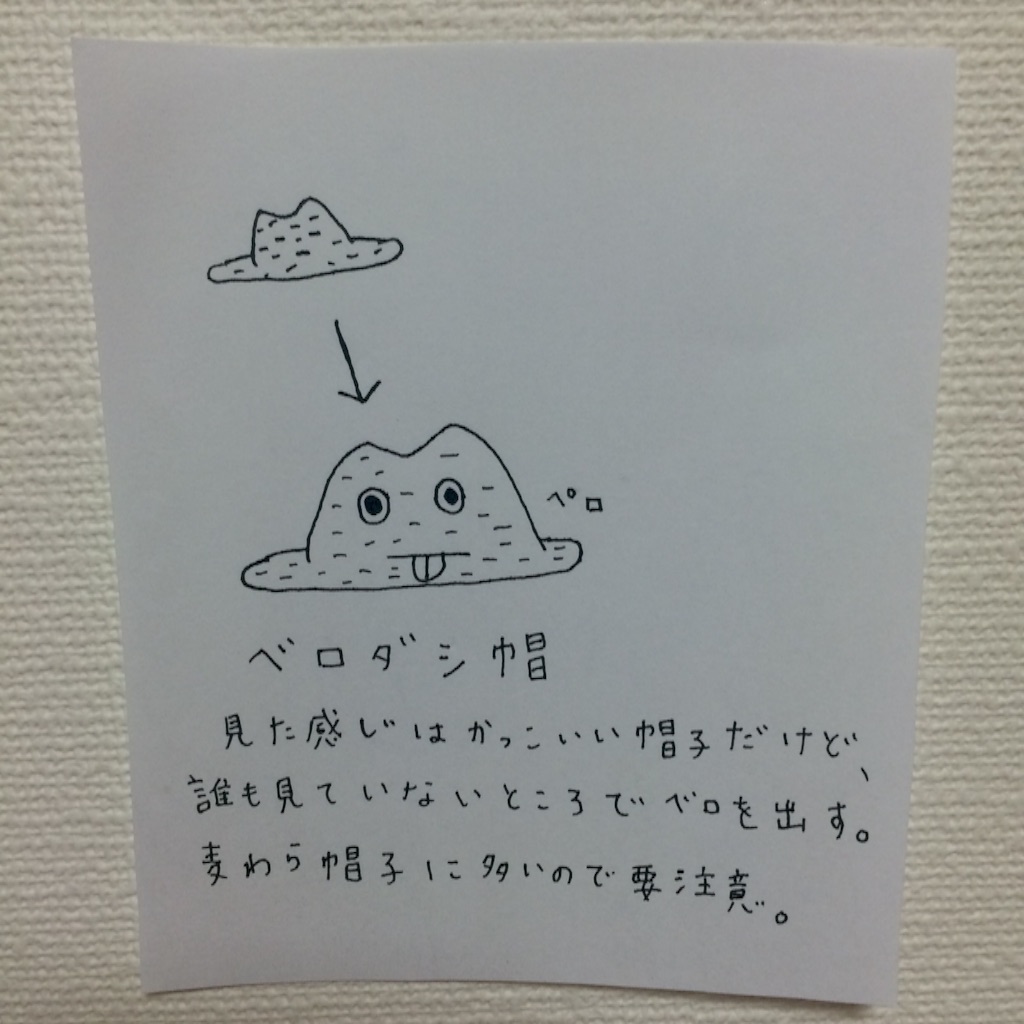 ペロ
ベロダシ帽
見た感じはかっこいい帽子だけど、
誰も見ていないところでベロを出す。
麦わら帽子に多いので要注意。